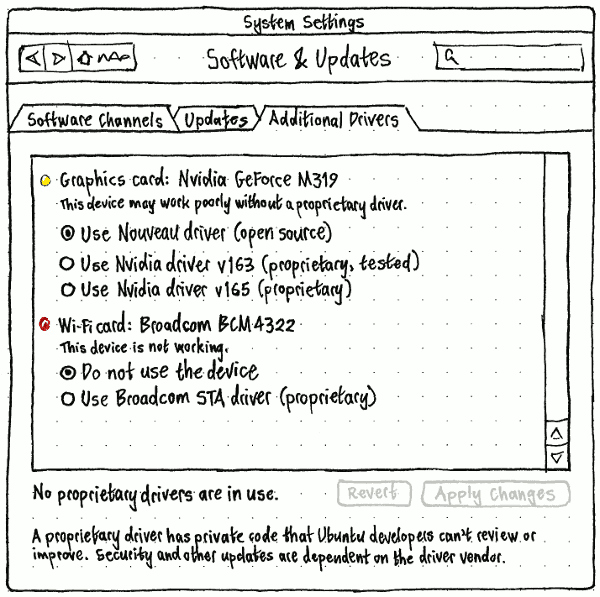 System Settings
Software & Updates
Software Channels Updates Additional Drivers
Graphics card: Nvidia GeForce M319
This device may work poorly without a proprietary driver.
Use Nouveau driver (open source)
Use Nvidia driver v163 (proprietary, tested)
Use Nvidia driver v165 (proprietary)
Wi-Fi card: Broadcom BCM4322
This device is not working.
Do not use the device
Use Broadcom STA driver (proprietary)
No proprietary drivers are in use.
Revert Apply Changes
A proprietary driver has private code that Ubuntu developers can't review or
improve. Security and other updates are dependent on the driver vendor.